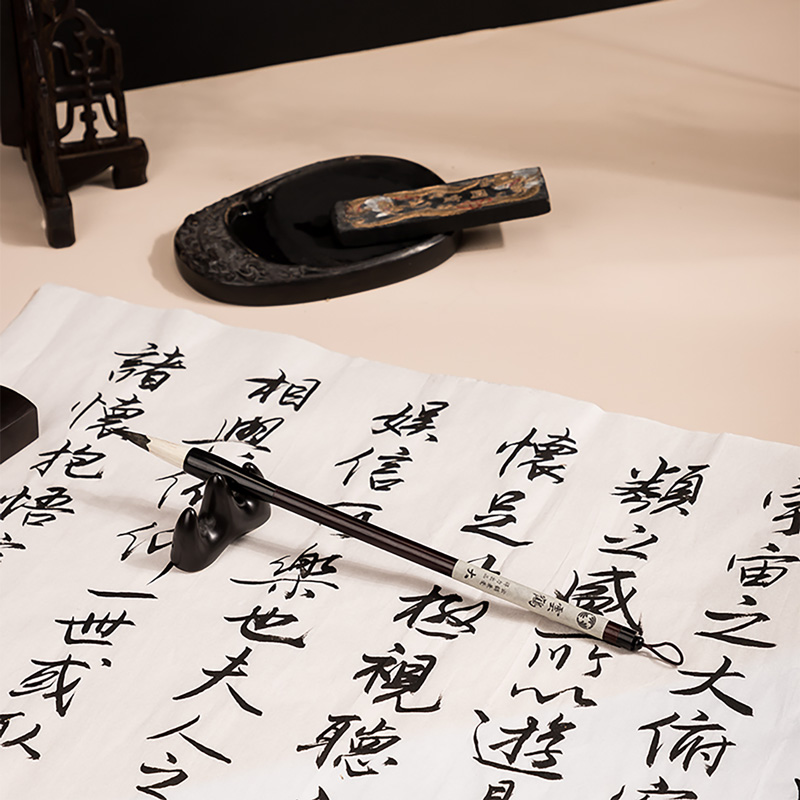 宇宙之大俯
類之盛所以遊
懷足以極視聽
娛信可樂也夫人之
相與俯仰一世或取
諸懷抱悟言
大